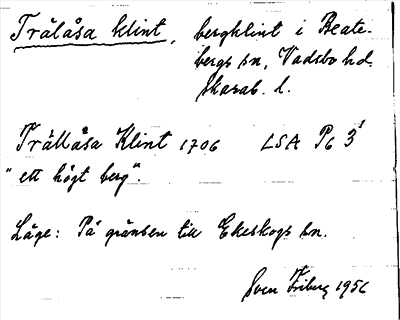 Trälåsa klint, bergklint i Beate-
bergs sn, Vadsbo hd.
Skarab. l.
Trällåsa Klint 1706 LSA P6 3¹
"ett högt berg".
Läge: På gränsen till Ekeskogs sn.
Sven Friberg 1956